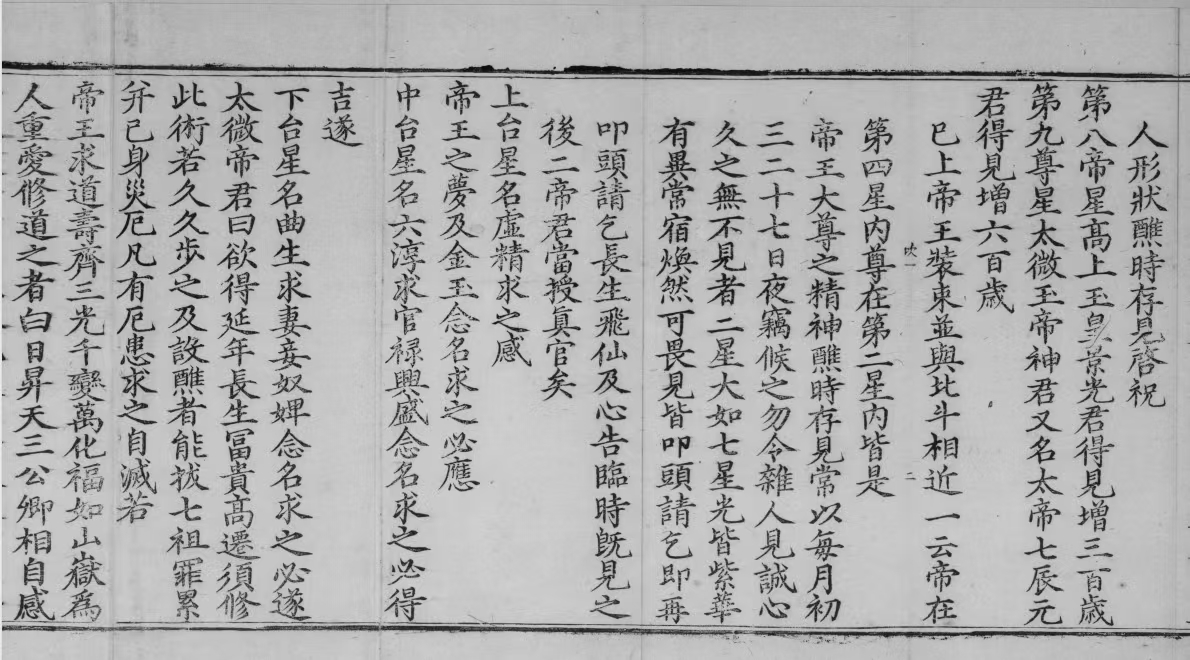 人形狀醮時存見啓祝
第八帝星髙上玉皇景光君得見增三百歲
第九尊星太微玉帝神君又名太帝七辰元
君得見增六百歲
巳上帝王裝束並與北斗相近一云帝在
吹一
二
第四星内尊在第二星内皆是
帝王大尊之精神醮時存見常以每月初
三二十七日夜竊候之勿令雜人見誠心
久之無不見者二星大如七星光皆紫華
有異常宿煥然可畏見皆叩頭請乞即再
叩頭請乞長生飛仙及心告臨時旣見之
後二帝君當授眞官矣
上台星名虛精求之感
帝王之夢及金玉念名求之必應
中台星名六淳求官祿興盛念名求之必得
吉遂
下台星名曲生求妻妾奴婢念名求之必遂
太微帝君曰欲得延年長生冨貴髙遷須修
此術若久久步之及設醮者能拔七祖罪累
并巳身災厄凡有厄患求之自滅若
帝王求道壽齊三光千變萬化福如山嶽爲
人重愛修道之者白日昇天三公卿相自感